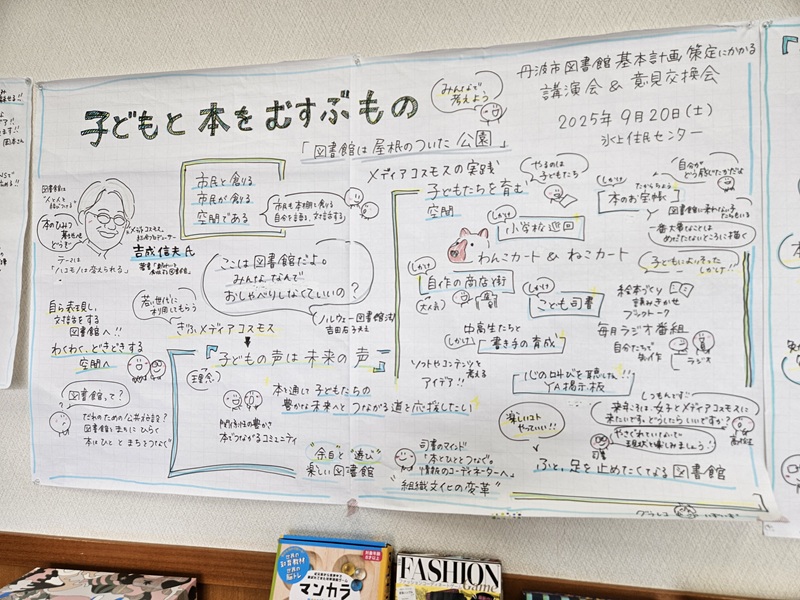 子どもと本をむすぶもの
みんなで
考えよう
丹波市図書館 基本計画 策定にかかる
講演会 & 意見交換会
2025年 9月20日(土)
氷上住民センター
「図書館は屋根のついた公園」
図書館は
市民と創る
市民が創る
空間である
市民も本棚に創り
吉成信夫氏
テーマは
ここは図書館だよ。
みんななんで
おしゃべりしなくていいの?
ノルウェー図書館
若い世代に
利用してもらう
ぎふメディアコスモス
自ら表現し、
対話をする
図書館へ!!
わくわく、どきどきする
空間へ
図書館って?
だれのための公共施設?
図書館をまちにひらく
本はひととまちをつなぐ
『子どもの声は未来の声』
理念
本を通して子どもたちの
豊かな未来へとつながる道を応援したい
関係性の豊かさ
本でつながるコミュニティ
"余白と"遊び"
楽しい図書館
司書のマインド
"本とひととつなぐ。
情報のコーディネーターへ"
"組織文化の変革"
メディアコスモスの実践
子どもたちを育む
空間
やるのは
子どもたち
しかけ
小学校巡回
わんこカート & ねこカート
しかけ
本のお宝帳
たからちょう
自分が
図書館に来れない子たちもいる
一番大事なことは
めだたないところに描く
子どもによりそった
しかけ!!
しかけ
自作の商店街
(大人気)
しかけ
こども司書
絵本づくり
読みきかせ
ブックトーク
毎月ラジオ番組
自分たちで
制作
ラジオ
中高生たちと
しかけ
書き手の育成
ソフトやコンテンツを
考える
アイデア!!
心の叫びを聴しん!!
YA掲示板
楽しいコト
やっていい!!
しつもんです!
来年こそは、女子とメディアコスモスに
来たいです。どうしたらいいですか?
高校生
やさぐれていないで
現状を楽しみましょう!
司書
ふと、足を止めたくなる図書館
グラレコ
世界の
知育教材
世界の
脳トレ
マンカラ
FASHION
Game